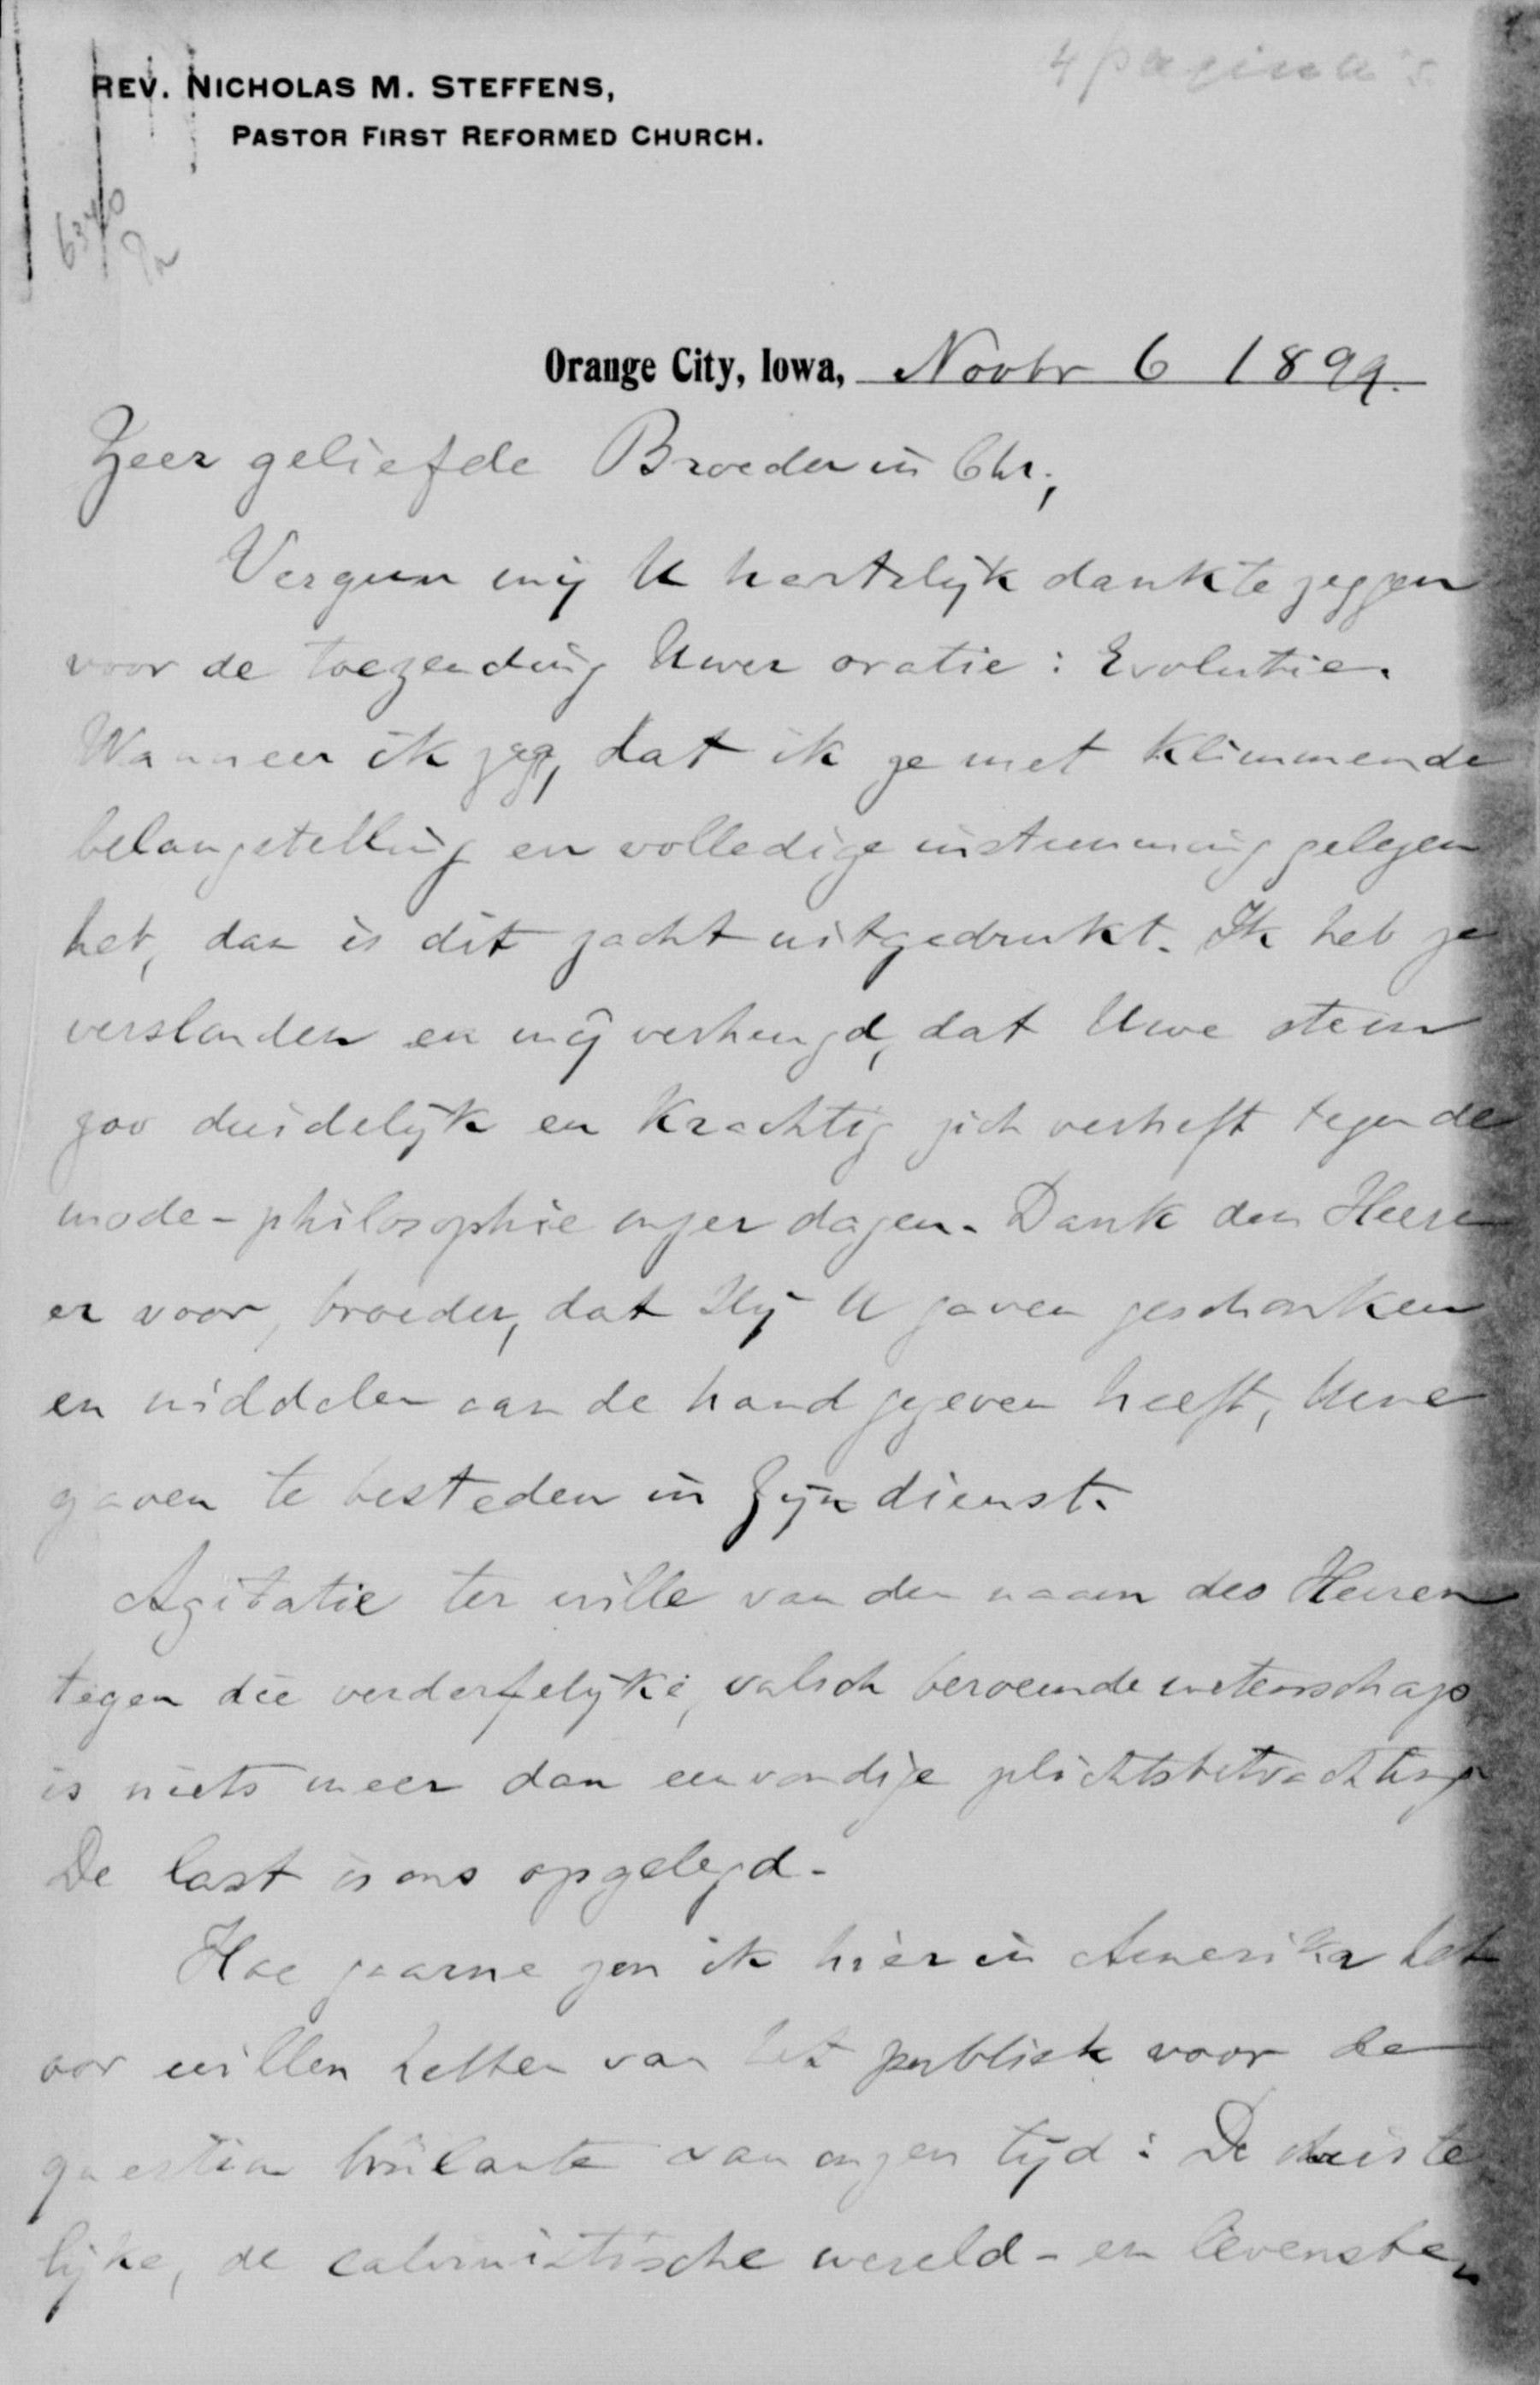 4 pagina's
REV. NICHOLAS M. STEFFENS,
PASTOR FIRST REFORMED CHURCH.
6340
Orange City, Iowa, Novbr 6 1899.
Zeer geliefde Broeder in Chr,
Vergun mij U hartelijk dank te zeggen
voor de toezending Uwer oratie: Evolutie.
Wanneer ik zeg, dat ik ze met klimmende
belangstelling en volledige instemming gelezen
heb, dan is dit zacht uitgedrukt. Ik heb ze
verslonden en mij verheugd, dat Uwe stem
zoo duidelijk en krachtig zich verheft tegen de
mode-philosophie onzer dagen. Dank den Heere
er voor, broeder, dat Hij U gaven geschonken
en middelen aan de hand gegeven heeft, Uwe
gaven te besteden in Zijn dienst.
Agitatie ter wille van den naam des Heeren
tegen die verderfelijke, valsch beroemde wetenschap
is niets meer dan eenvoudige plichtsbetrachting
De last is ons opgelegd.
Hoe gaarne zou ik hier in Amerika het
oor willen hebben van het publiek voor de
question brûlante van onzen tijd: De christe
lijke, de calvinistische wereld- en levensbe